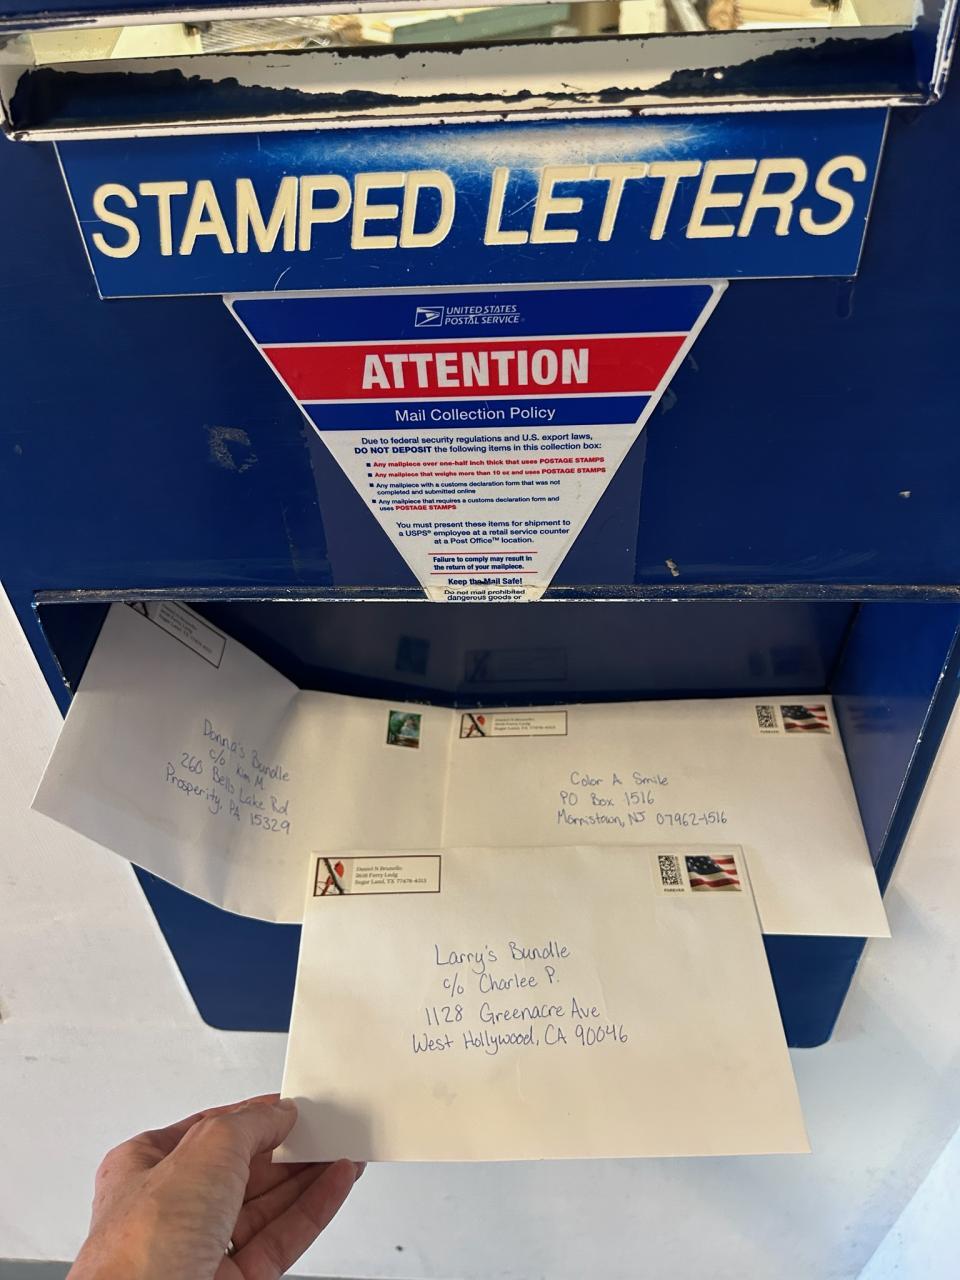 STAMPED LETTERS
UNITED STATES
POSTAL SERVICE
ATTENTION
Mail Collection Policy
Due to federal security regulations and U.S. export laws,
DO NOT DEPOSIT the following items in this collection box:
Any mailpiece over one-half inch thick that uses POSTAGE STAMPS
Any mailpiece that weighs more than 10 oz and uses POSTAGE STAMPS
Any mailpiece with a customs declaration form that was not
completed and submitted online
Any mailpiece that requires a customs declaration form and
uses POSTAGE STAMPS
You must present these items for shipment to
a USPS® employee at a retail service counter
at a Post Office™ location.
Failure to comply may result in
the return of your mailpiece.
Keep the Mail Safe!
Do not mail prohibited
dangerous goods or
Donna's Bundle
c/o Kim M.
260 Bells Lake Rd
Prosperity, PA 15329
Daniel N Brunello
Sugar Land, TX 77479-4213
FOREVER
Color A Smile
PO Box 1516
Morristown, NJ 07962-1516
Daniel N Brunello
Ferry Landg
Sugar Land, TX
FOREVER
Larry's Bundle
c/o Charlee P.
1128 Greenacre Ave
West Hollywood, CA 90046